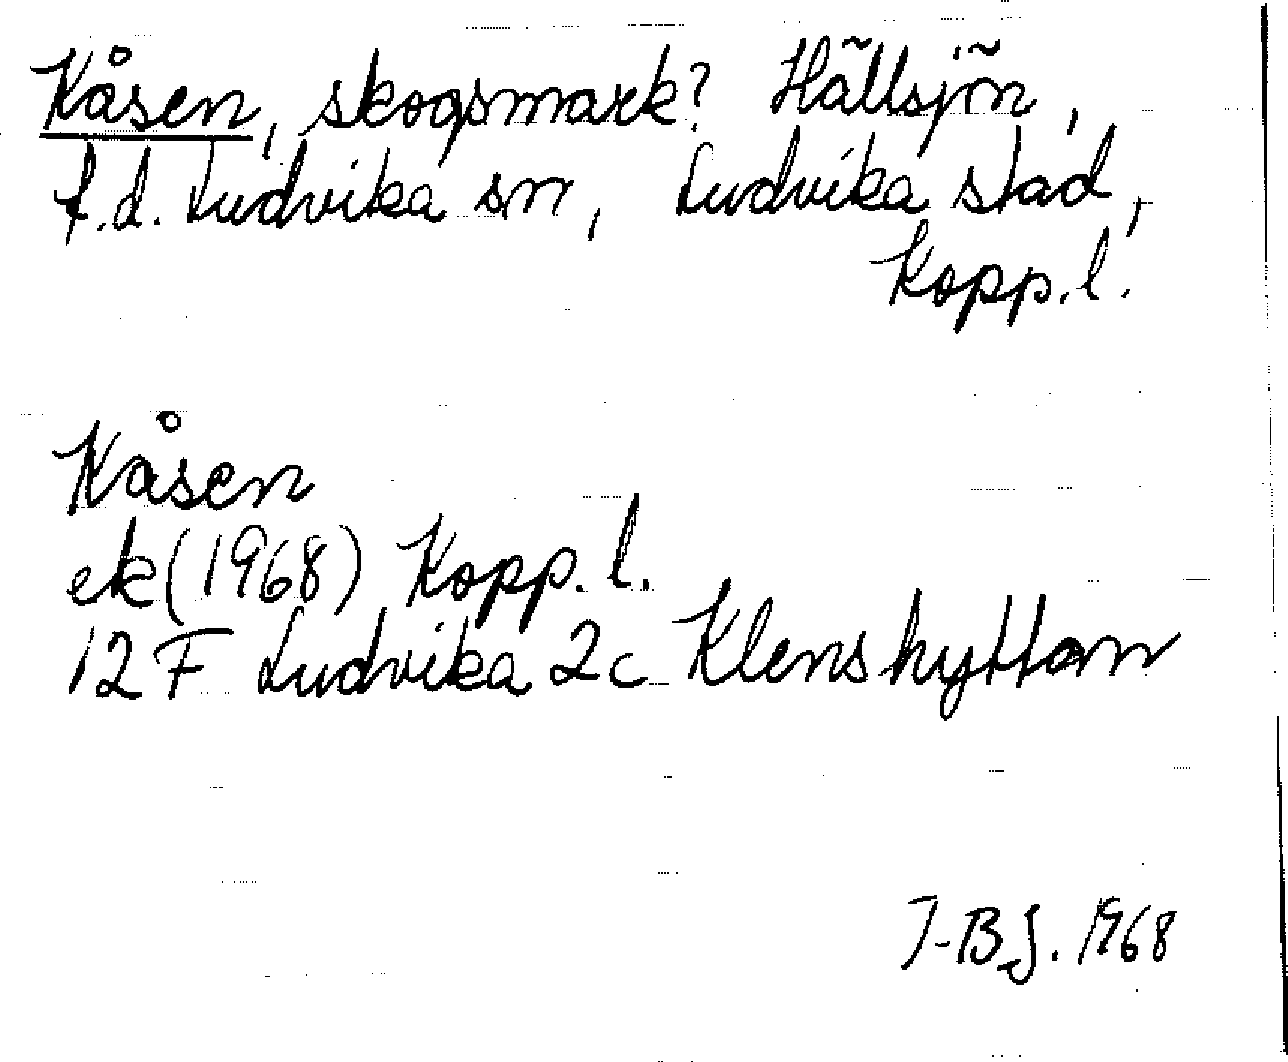 Kåsen, skogsmark? Hällsjön,
f.d. Ludvika sn, Ludvika stad,
Kopp.l.
Kåsen
ek(1968) Kopp.l.
12F Ludvika 2c Klenshyttan
I-B.J. 1968